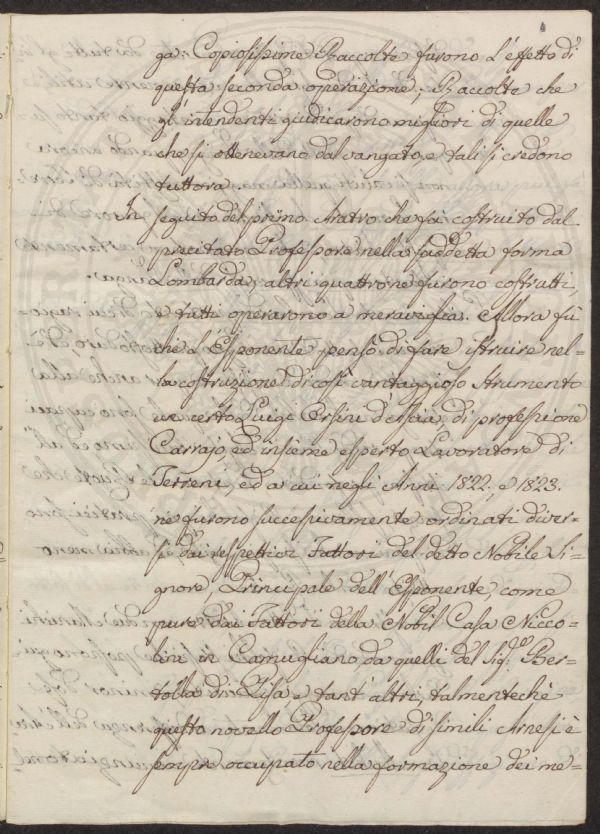 ga: Copiosissime Raccolte furono l'effetto di
questa seconda operazione; Raccolte che
gl'intendenti giudicarono migliori di quelle
che si ottenevano dal vangato, e tali si credono
tuttora.
In seguito del primo Aratro che fu costruito dal
precitato Professore nella suddetta forma
Lombarda, altri quattro ne furono costrutti,
e tutti operarono a meraviglia. Allora fù
che l'Esponente pensò di fare istruire nel=
la costruzione di così vantaggioso Strumento
un certo Luigi Orsini d'Era, di professione
Carrajo, ed insieme esperto Lavoratore di
Terreni, ed a cui negli Anni 1822, e 1823.
ne furono successivamente ordinati diver=
si dai respettivi Fattori del detto Nobile Si=
gnore, Principale dell'Esponente come
pure dai Fattori della Nobil Casa Nicco=
lini in Camugliano da quelli del Sig.re Ber=
tolla di Pisa e tant'altri, talmentechè
questo novello Professore di simili Arnesi è
sempre occupato nella formazione dei me=